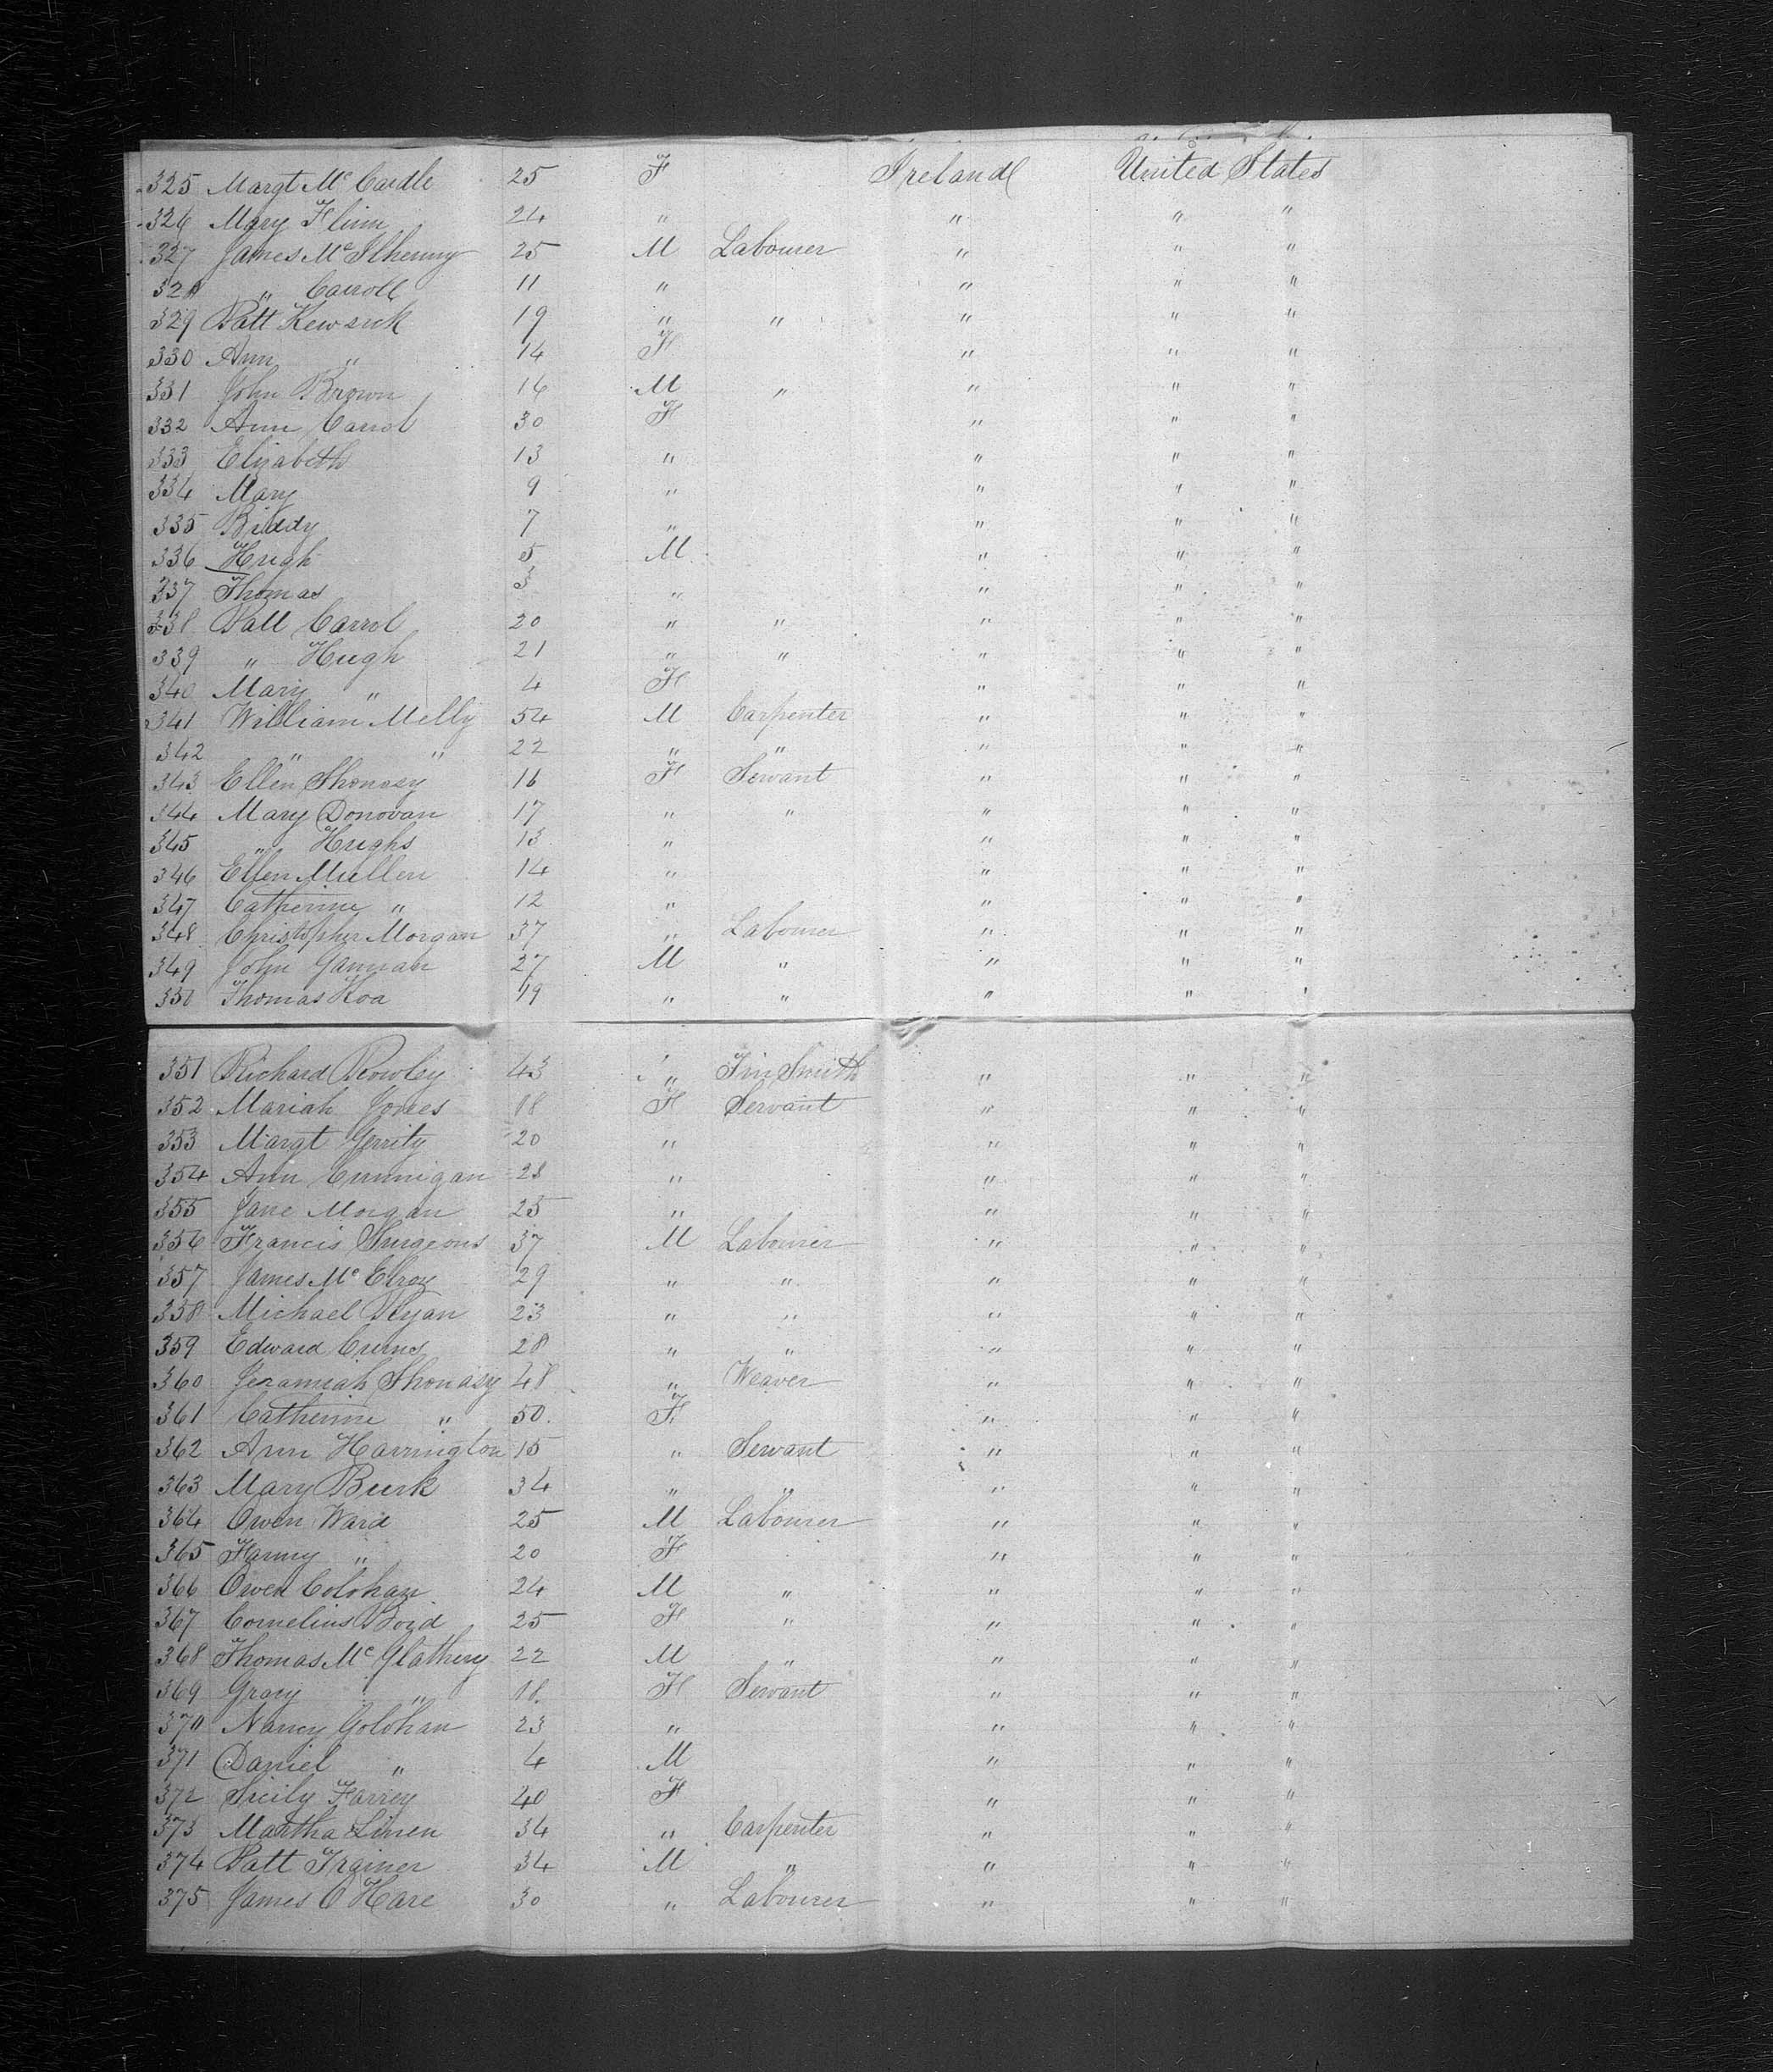 325 Margt Mc Cardle 25 F Ireland United States
326 Mary Flinn 24 " " " "
327 James McIlhenny 25 M Labourer " " "
328 " Carroll 11 " " " "
329 Patt Kewsick 19 " " " " "
330 Ann " 14 F " " "
331 John Brown 16 M " " " "
332 Ann Carrol 30 F " " "
333 Elizabeth 13 " " " "
334 Mary 9 " " " "
335 Biddy 7 " " " "
336 Hugh 5 M " " "
337 Thomas 3 " " " "
338 Patt Carrol 20 " " " " "
339 " Hugh 21 " " " " "
340 Mary " 4 F " " "
341 William Melly 54 M Carpenter " " "
342 " " 22 " " " " "
343 Ellen Shonasy 16 F Servant " " "
344 Mary Donovan 17 " " " " "
345 " Hughs 13 " " " "
346 Ellen Mullen 14 " " " "
347 Catherine " 12 " " " "
348 Christopher Morgan 37 " Labourer " " "
349 John Gannan 27 M " " " "
350 Thomas Koa 19 " " " " "
351 Richard Rowley 43 " Tin Smith " " "
352 Mariah Jones 18 F Servant " " "
353 Margt Gerrity 20 " " " "
354 Ann Cunnigan 28 " " " "
355 Jane Morgan 25 " " " "
356 Francis Surgeons 37 M Labourer " " "
357 James Mc Elroy 29 " " " " "
358 Michael Ryan 23 " " " " "
359 Edward Curns 28 " " " " "
360 Jeramiah Shonasy 48 " Weaver " " "
361 Catherine " 50. F " " "
362 Ann Harrington 15 " Servant " " "
363 Mary Burk 34 " " " " "
364 Owen Ward 25 M Labourer " " "
365 Fanny " 20 F " " "
366 Owen Colohan 24 M " " " "
367 Cornelius Boyd 25 F " " " "
368 Thomas Mc Glathery 22 M " " " "
369 Gracy " 18. F Servant " " "
370 Nancy Golohan 23 " " " "
371 Daniel " 4 M " " "
372 Sicily Farrey 40 F " " "
373 Martha Linen 34 " Carpenter " " "
374 Patt Trainer 34 M " " " "
375 James O Hare 30 " Labourer " " "